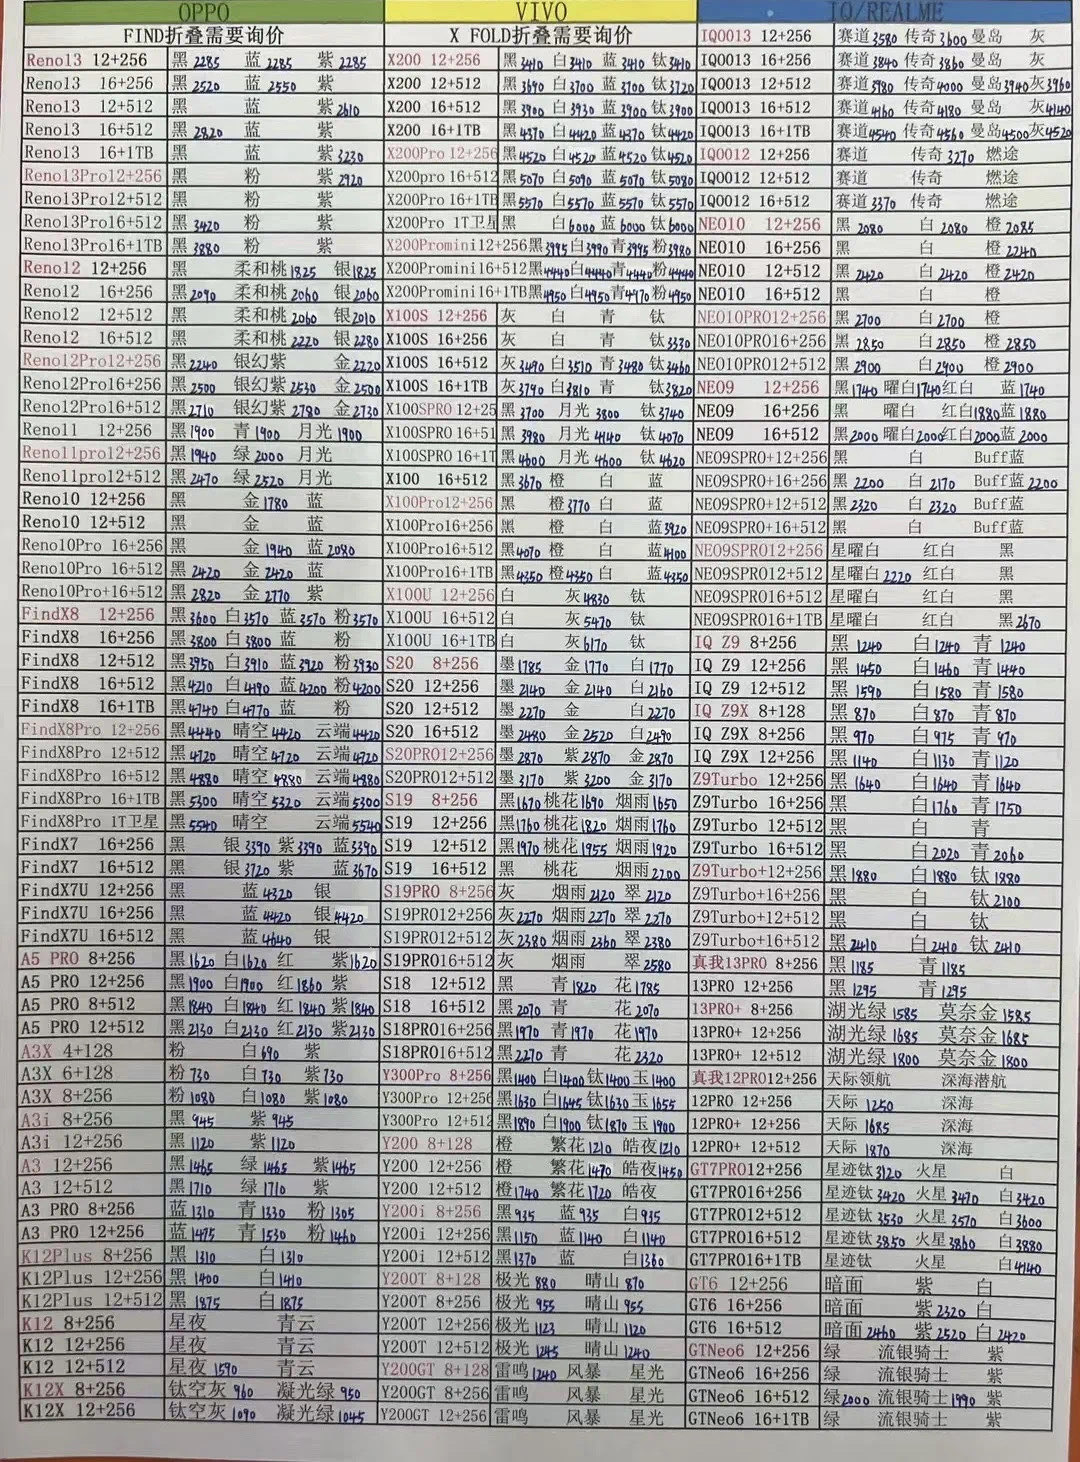 OPPO
FIND折叠需要询价
Reno13 12+256 黑2285 蓝2285 紫2285
Reno13 16+256 黑2520 蓝2550 紫
Reno13 12+512 黑 蓝 紫2610
Reno13 16+512 黑2820 蓝 紫
Reno13 16+1TB 黑 蓝 紫3230
Reno13Pro12+256 黑 粉 紫2920
Reno13Pro12+512 黑 粉 紫
Reno13Pro16+512 黑3420 粉 紫
Reno13Pro16+1TB 黑3880 粉 紫
Reno12 12+256 黑 柔和桃1825 银1825
Reno12 16+256 黑2090 柔和桃2060 银2060
Reno12 12+512 黑 柔和桃2060 银2010
Reno12 16+512 黑 柔和桃2220 银2280
Reno12Pro12+256 黑2240 银幻紫 金2220
Reno12Pro16+256 黑2500 银幻紫2530 金2500
Reno12Pro16+512 黑2710 银幻紫2780 金2730
Reno11 12+256 黑1900 青1900 月光1900
Reno11pro12+256 黑1940 绿2000 月光
Reno11pro12+512 黑2470 绿2520 月光
Reno10 12+256 黑 金1780 蓝
Reno10 12+512 黑 金 蓝
Reno10Pro 16+256 黑 金1940 蓝2080
Reno10Pro 16+512 黑2420 金2420 蓝
Reno10Pro+16+512 黑2820 金2770 紫
FindX8 12+256 黑3600 白3570 蓝3570 粉3570
FindX8 16+256 黑3800 白3800 蓝 粉
FindX8 12+512 黑3950 白3910 蓝3920 粉3930
FindX8 16+512 黑4210 白4190 蓝4200 粉4200
FindX8 16+1TB 黑4740 白4770 蓝 粉
FindX8Pro 12+256 黑4440 晴空4420 云端4420
FindX8Pro 12+512 黑4720 晴空4720 云端4720
FindX8Pro 16+512 黑4880 晴空4880 云端4880
FindX8Pro 16+1TB 黑5300 晴空5320 云端5300
FindX8Pro 1T卫星 黑5540 晴空 云端5540
FindX7 16+256 黑 银3390 紫3390 蓝3390
FindX7 16+512 黑 银3720 紫 蓝3670
FindX7U 12+256 黑 蓝4320 银
FindX7U 16+256 黑 蓝4420 银4420
FindX7U 16+512 黑 蓝4640 银
A5 PRO 8+256 黑1620 白1620 红 紫1620
A5 PRO 12+256 黑1900 白1900 红1860 紫
A5 PRO 8+512 黑1840 白1840 红1840 紫1840
A5 PRO 12+512 黑2130 白2130 红2130 紫2130
A3X 4+128 粉 白690 紫
A3X 6+128 粉730 白730 紫730
A3X 8+256 粉1080 白1080 紫1080
A3i 8+256 黑945 紫945
A3i 12+256 黑1120 紫1120
A3 12+256 黑1465 绿1465 紫1465
A3 12+512 黑1710 绿1710 紫
A3 PRO 8+256 蓝1310 青1330 粉1305
A3 PRO 12+256 蓝1475 青1530 粉1460
K12Plus 8+256 黑1310 白1310
K12Plus 12+256 黑1400 白1410
K12Plus 12+512 黑1875 白1875
K12 8+256 星夜 青云
K12 12+256 星夜 青云
K12 12+512 星夜1590 青云
K12X 8+256 钛空灰960 凝光绿950
K12X 12+256 钛空灰1090 凝光绿1045
VIVO
X FOLD折叠需要询价
X200 12+256 黑3410 白3410 蓝3410 钛3410
X200 12+512 黑3690 白3700 蓝3700 钛3720
X200 16+512 黑3900 白3930 蓝3900 钛3900
X200 16+1TB 黑4370 白4420 蓝4370 钛4420
X200Pro 12+256 黑4520 白4520 蓝4520 钛4520
X200pro 16+512 黑5070 白5090 蓝5070 钛5080
X200Pro 16+1TB 黑5570 白5570 蓝5570 钛5570
X200Pro 1T卫星 黑 白6000 蓝6000 钛6000
X200Promini12+256 黑3995 白3990 青3995 粉3980
X200Promini16+512 黑4440 白4440 青4440 粉4440
X200Promini16+1TB 黑4950 白4950 青4970 粉4950
X100S 12+256 灰 白 青 钛
X100S 16+256 灰 白 青 钛3330
X100S 16+512 灰3490 白3510 青3480 钛3460
X100S 16+1TB 灰3790 白3810 青 钛3820
X100SPRO 12+25 黑3700 月光3800 钛3740
X100SPRO 16+51 黑3980 月光4140 钛4070
X100SPRO 16+1T 黑4600 月光4600 钛4620
X100 16+512 黑3670 橙 白 蓝
X100Pro12+256 黑 橙3770 白 蓝
X100Pro16+256 黑 橙 白 蓝3920
X100Pro16+512 黑4070 橙 白 蓝4100
X100Pro16+1TB 黑4350 橙4350 白 蓝4350
X100U 12+256 白 灰4830 钛
X100U 16+512 白 灰5470 钛
X100U 16+1TB 白 灰6170 钛
S20 8+256 墨1785 金1770 白1770
S20 12+256 墨2140 金2140 白2160
S20 12+512 墨2270 金 白2270
S20 16+512 墨2480 金2520 白2490
S20PRO12+256 墨2870 紫2870 金2870
S20PRO12+512 墨3170 紫3200 金3170
S19 8+256 黑1670 桃花1690 烟雨1650
S19 12+256 黑1760 桃花1820 烟雨1760
S19 12+512 黑1970 桃花1955 烟雨1920
S19 16+512 黑 桃花 烟雨2200
S19PRO 8+256 灰 烟雨2120 翠2120
S19PRO12+256 灰2270 烟雨2270 翠2270
S19PRO12+512 灰2380 烟雨2360 翠2380
S19PRO16+512 灰 烟雨 翠2580
S18 12+512 黑 青1820 花1785
S18 16+512 黑2070 青 花2070
S18PRO16+256 黑1970 青1970 花1970
S18PRO16+512 黑2270 青 花2320
Y300Pro 8+256 黑1400 白1400 钛1400 玉1400
Y300Pro 12+256 黑1630 白1645 钛1630 玉1655
Y300Pro 12+512 黑1890 白1900 钛1870 玉1900
Y200 8+128 橙 繁花1210 皓夜1210
Y200 12+256 橙 繁花1470 皓夜1450
Y200 12+512 橙1740 繁花1720 皓夜
Y200i 8+256 黑935 蓝935 白935
Y200i 12+256 黑1150 蓝1140 白1140
Y200i 12+512 黑1370 蓝 白1360
Y200T 8+128 极光880 晴山870
Y200T 8+256 极光955 晴山955
Y200T 12+256 极光1123 晴山1120
Y200T 12+512 极光1245 晴山1240
Y200GT 8+128 雷鸣1240 风暴 星光
Y200GT 8+256 雷鸣 风暴 星光
Y200GT 12+256 雷鸣 风暴 星光
IQ/REALME
IQ0013 12+256 赛道3580 传奇3600 曼岛 灰
IQ0013 16+256 赛道3840 传奇3860 曼岛 灰
IQ0013 12+512 赛道3980 传奇4000 曼岛3940 灰3960
IQ0013 16+512 赛道4160 传奇4180 曼岛 灰4140
IQ0013 16+1TB 赛道4540 传奇4560 曼岛4500 灰4520
IQ0012 12+256 赛道 传奇3270 燃途
IQ0012 12+512 赛道 传奇 燃途
IQ0012 16+512 赛道3370 传奇 燃途
NE010 12+256 黑2080 白2080 橙2085
NE010 16+256 黑 白 橙2240
NE010 12+512 黑2420 白2420 橙2420
NE010 16+512 黑 白 橙
NE010PRO12+256 黑2700 白2700 橙
NE010PRO16+256 黑2850 白2850 橙2850
NE010PRO12+512 黑2900 白2900 橙2900
NE09 12+256 黑1740 曜白1740 红白 蓝1740
NE09 16+256 黑 曜白 红白1880 蓝1880
NE09 16+512 黑2000 曜白2000 红白2000 蓝2000
NE09SPRO+12+256 黑 白 Buff蓝
NE09SPRO+16+256 黑2200 白2170 Buff蓝2200
NE09SPRO+12+512 黑2320 白2320 Buff蓝
NE09SPRO+16+512 黑 白 Buff蓝
NE09SPRO12+256 星曜白 红白 黑
NE09SPRO12+512 星曜白2220 红白 黑
NE09SPRO16+512 星曜白 红白 黑
NE09SPRO16+1TB 星曜白 红白 黑2670
IQ Z9 8+256 黑1240 白1240 青1240
IQ Z9 12+256 黑1450 白1460 青1440
IQ Z9 12+512 黑1590 白1580 青1580
IQ Z9X 8+128 黑870 白870 青870
IQ Z9X 8+256 黑970 白975 青970
IQ Z9X 12+256 黑1140 白1130 青1120
Z9Turbo 12+256 黑1640 白1640 青1640
Z9Turbo 16+256 黑 白1760 青1750
Z9Turbo 12+512 黑 白 青
Z9Turbo 16+512 黑 白2020 青2060
Z9Turbo+12+256 黑1880 白1880 钛1880
Z9Turbo+16+256 黑 白 钛2100
Z9Turbo+12+512 黑 白 钛
Z9Turbo+16+512 黑2410 白2410 钛2410
真我13PRO 8+256 黑1185 青1185
13PRO 12+512 黑1295 青1295
13PRO+ 8+256 湖光绿1585 莫奈金1585
13PRO+ 12+256 湖光绿1685 莫奈金1685
13PRO+ 12+512 湖光绿1800 莫奈金1800
真我12PRO12+256 天际领航 深海潜航
12PRO 12+256 天际1250 深海
12PRO+ 12+256 天际1685 深海
12PRO+ 12+512 天际1870 深海
GT7PRO12+256 星迹钛3120 火星 白
GT7PRO16+256 星迹钛3420 火星3470 白3420
GT7PRO12+512 星迹钛3530 火星3570 白3600
GT7PRO16+512 星迹钛3850 火星3860 白3880
GT7PRO16+1TB 星迹钛 火星 白4140
GT6 12+256 暗面 紫 白
GT6 16+256 暗面 紫2320 白
GT6 16+512 暗面2460 紫2520 白2420
GTNeo6 12+256 绿 流银骑士 紫
GTNeo6 16+256 绿 流银骑士 紫
GTNeo6 16+512 绿2000 流银骑士1990 紫
GTNeo6 16+1TB 绿 流银骑士 紫